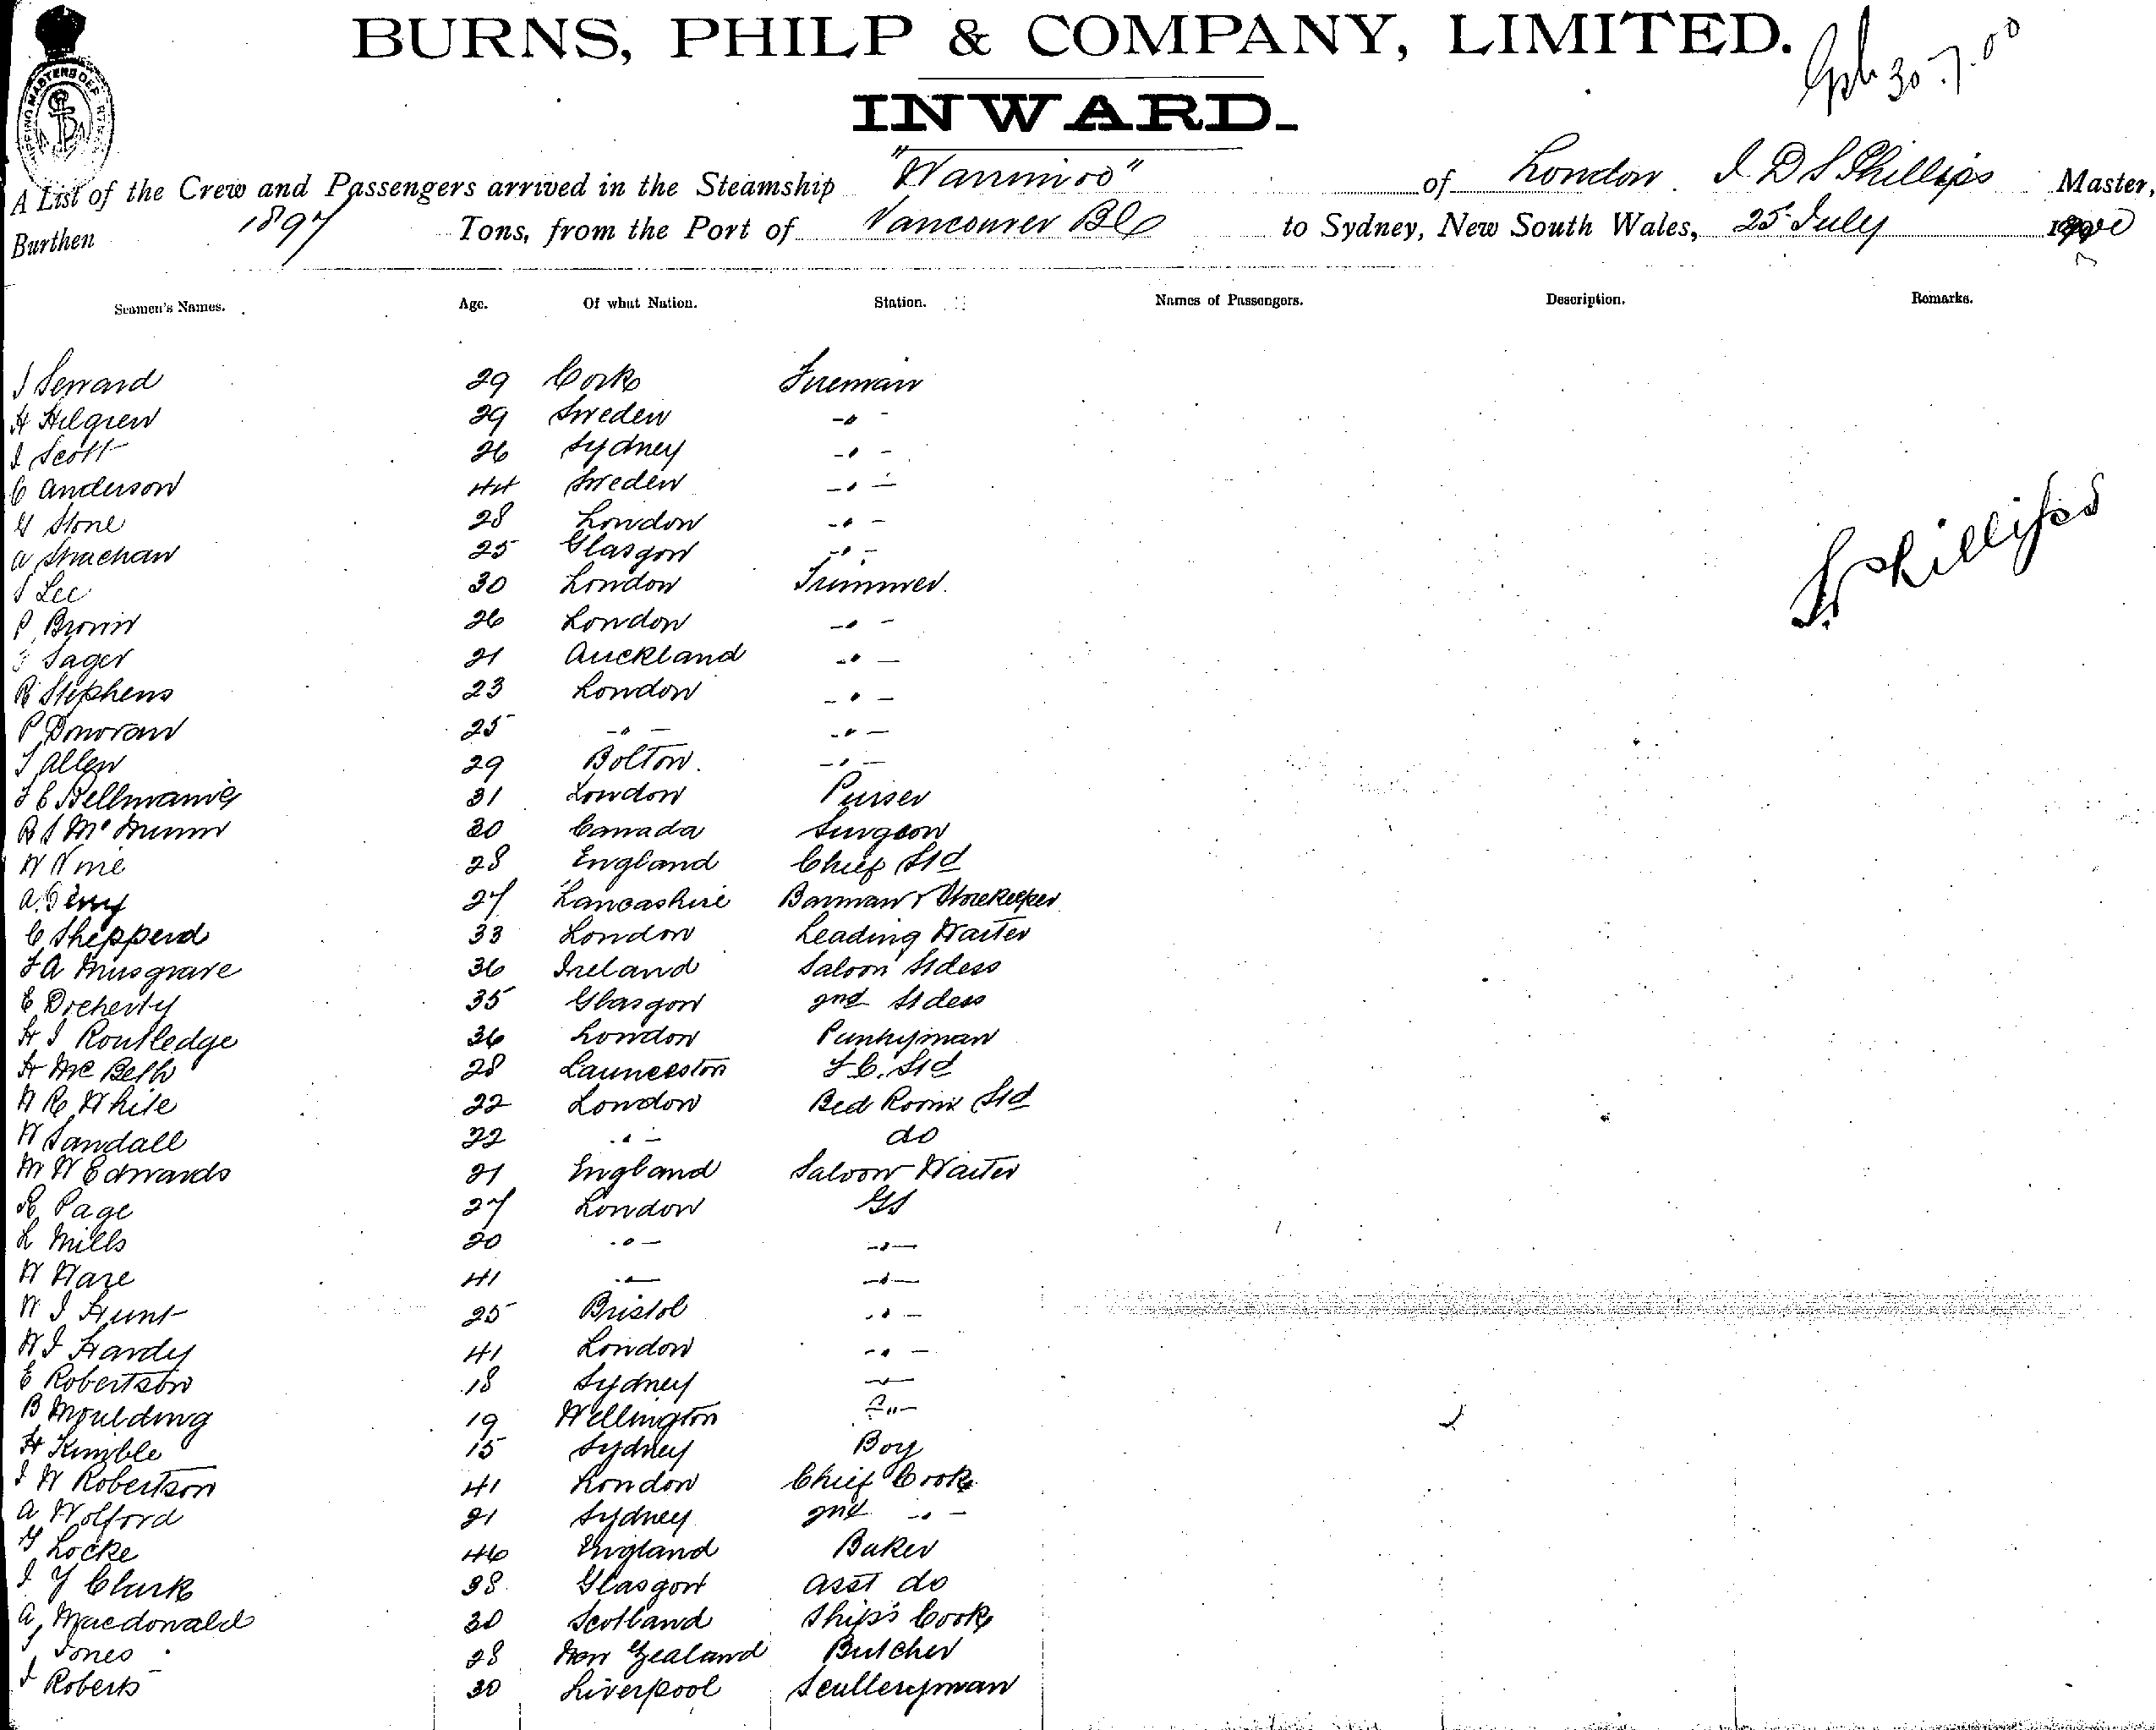 BURNS, PHILP & COMPANY, LIMITED.
30.7.00
INWARD.
SHIPPING MASTERS OFF
A List of the Crew and Passengers arrived in the Steamship "Warrimoo" of London J D S Phillips Master,
Burthen 1897 Tons, from the Port of Vancouver BC to Sydney, New South Wales, 25 July
Seamen's Names. Age. Of what Nation. Station. Names of Passengers. Description. Remarks.
29 Cork Fireman
H Hilgren 29 Sweden -"-
J Scott 26 Sydney -"-
C Anderson 44 Sweden -"-
G Stone 28 London -"-
A Strachan 25 Glasgow -"-
Phillips
J Lee 30 London Trimmer
P Brown 26 London -"-
Sager 21 Auckland -"-
R Stephens 23 London -"-
P Donovan 25 -"- -"-
J Allen 29 Bolton -"-
31 London Purser
30 Canada Surgeon
28 England Chief Std
27 Lancashire Barman & Storekeeper
C Shepperd 33 London Leading Waiter
F A Musgrave 36 Ireland Saloon Stdess
E Docherty 35 Glasgow 2nd Stdess
H J Routledge 36 London Pantryman
H Mc Beth 28 Launceston F.C. Std
W R White 22 London Bed Room Std
W Sandall 22 -"- do
M W Edwards 21 England Saloon Waiter
R Page 27 London GS
L Mills 20 -"- -"-
W Ware 41 -"- -"-
W J Hunt 25 Bristol -"-
W J Hardy 41 London -"-
E Robertson 18 Sydney -"-
B Moulding 19 Wellington -"-
H Kimble 15 Sydney Boy
J W Robertson 41 London Chief Cook
A Wolford 21 Sydney 2nd -"-
G Locke 46 England Baker
J Y Clark 38 Glasgow Asst do
A Macdonald 30 Scotland Ship's Cook
J Jones 28 New Zealand Butcher
J Roberts 30 Liverpool Sculleryman